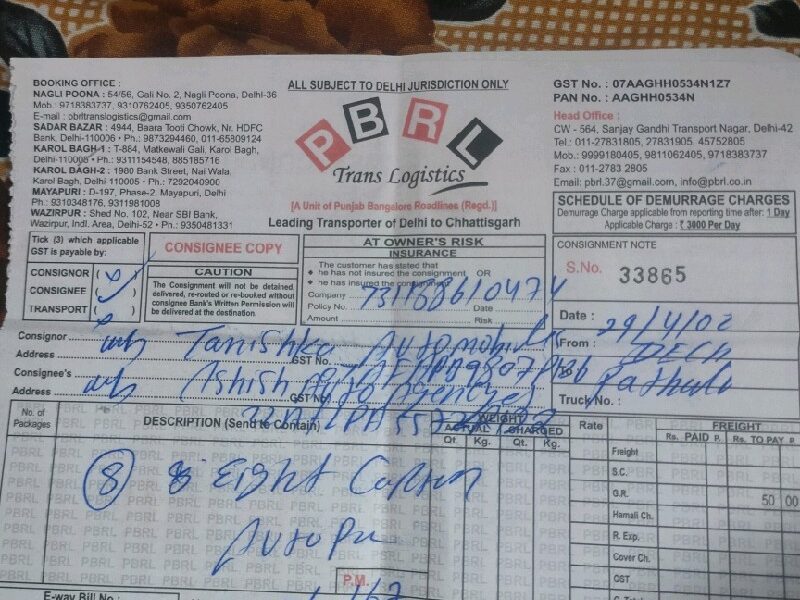 BOOKING OFFICE :
NAGLI POONA : 54/56, Gali No. 2, Nagli Poona, Delhi-36
Mob.: 9718383737, 9310762405, 9350762405
E-mail : pbrltranslogistics@gmail.com
SADAR BAZAR : 4944, Baara Tooti Chowk, Nr. HDFC
Bank, Delhi-110006 • Ph.: 9873294460, 011-65809124
KAROL BAGH-1 : T-864, Matkewali Gali, Karol Bagh,
Delhi-110008 • Ph.: 9311154548, 885185716
KAROL BAGH-2 : 1980 Bank Street, Nai Wala,
Karol Bagh, Delhi 110005 • Ph.: 7292040900
MAYAPURI : D-197, Phase-2, Mayapuri, Delhi
Ph.: 9310348176, 9311981008
WAZIRPUR : Shed No. 102, Near SBI Bank,
Wazirpur, Indl. Area, Delhi-52 • Ph.: 9350481331
ALL SUBJECT TO DELHI JURISDICTION ONLY
PBRL
Trans Logistics
[A Unit of Punjab Bangalore Roadlines (Regd.)]
Leading Transporter of Delhi to Chhattisgarh
GST No. : 07AAGHH0534N1Z7
PAN No. : AAGHH0534N
Head Office :
CW - 564, Sanjay Gandhi Transport Nagar, Delhi-42
Tel.: 011-27831805, 27831905, 45752805
Mob.: 9999180405, 9811062405, 9718383737
Fax : 011-2783 2805
Email: pbrl.37@gmail.com, info@pbrl.co.in
SCHEDULE OF DEMURRAGE CHARGES
Demurrage Charge applicable from reporting time after: 1 Day
Applicable Charge : ₹ 3000 Per Day
Tick (3) which applicable
GST is payable by:
CONSIGNOR ( )
CONSIGNEE ( )
TRANSPORT ( )
CONSIGNEE COPY
CAUTION
The Consignment will not be detained
delivered, re-routed or re-booked without
consignee Bank's Written Permission
will be delivered at the destination.
AT OWNER'S RISK
INSURANCE
The customer has stated that
• he has not insured the consignment OR
• he has insured the consignment
Company
Policy No. Date
Amount Risk
CONSIGNMENT NOTE
S.No. 33865
Date : 29/4/02
From :
To
Truck No. :
Consignor Tanishka Automobiles
Address GST No.
Consignee's Ashish Auto Agencies
Address GST No.
No. of
Packages
DESCRIPTION (Send to Contain)
WEIGHT
ACTUAL CHARGED
Qt. Kg. Qt. Kg.
Rate
FREIGHT
Rs. PAID P. Rs. TO PAY P.
Freight
S.C.
G.R. 50 00
Hamali Ch.
R. Exp.
Cover Ch.
GST
8 Eight
P.M.
E-way Bill No :